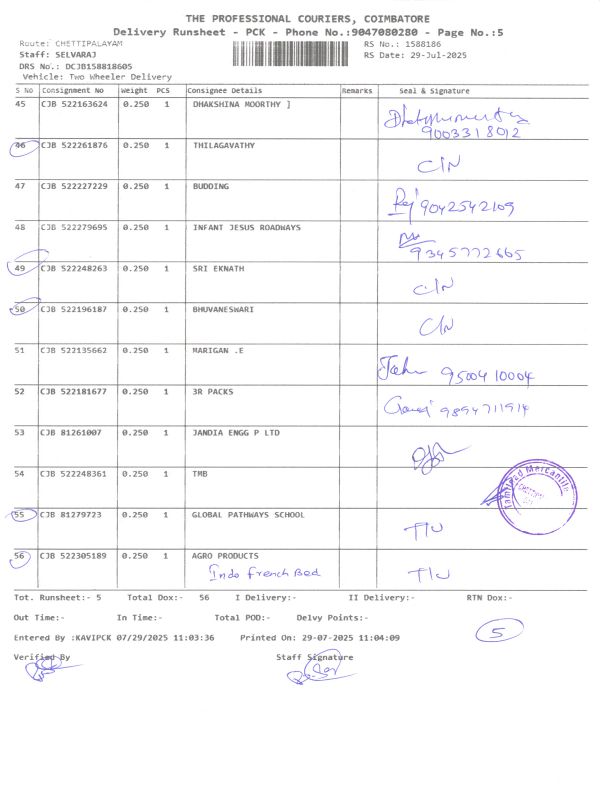 THE PROFESSIONAL COURIERS, COIMBATORE
Delivery Runsheet - PCK - Phone No.:9047080280 - Page No.:5
Route: CHETTIPALAYAM RS No.: 1588186
Staff: SELVARAJ RS Date: 29-Jul-2025
DRS No.: DCJB158818605
Vehicle: Two Wheeler Delivery
S No Consignment No Weight PCS Consignee Details Remarks Seal & Signature
45 CJB 522163624 0.250 1 DHAKSHINA MOORTHY ]
9003318012
46 CJB 522261876 0.250 1 THILAGAVATHY C/N
47 CJB 522227229 0.250 1 BUDDING 9042542109
48 CJB 522279695 0.250 1 INFANT JESUS ROADWAYS
9345772665
49 CJB 522248263 0.250 1 SRI EKNATH C/N
50 CJB 522196187 0.250 1 BHUVANESWARI C/N
51 CJB 522135662 0.250 1 MARIGAN .E 9500410004
52 CJB 522181677 0.250 1 3R PACKS 9894711914
53 CJB 81261007 0.250 1 JANDIA ENGG P LTD
54 CJB 522248361 0.250 1 TMB Tamilnad Mercantile
55 CJB 81279723 0.250 1 GLOBAL PATHWAYS SCHOOL
56 CJB 522305189 0.250 1 AGRO PRODUCTS
Indo French Bed
Tot. Runsheet:- 5 Total Dox:- 56 I Delivery:- II Delivery:- RTN Dox:-
Out Time:- In Time:- Total POD:- Delvy Points:-
5
Entered By :KAVIPCK 07/29/2025 11:03:36 Printed On: 29-07-2025 11:04:09
Verified By Staff Signature